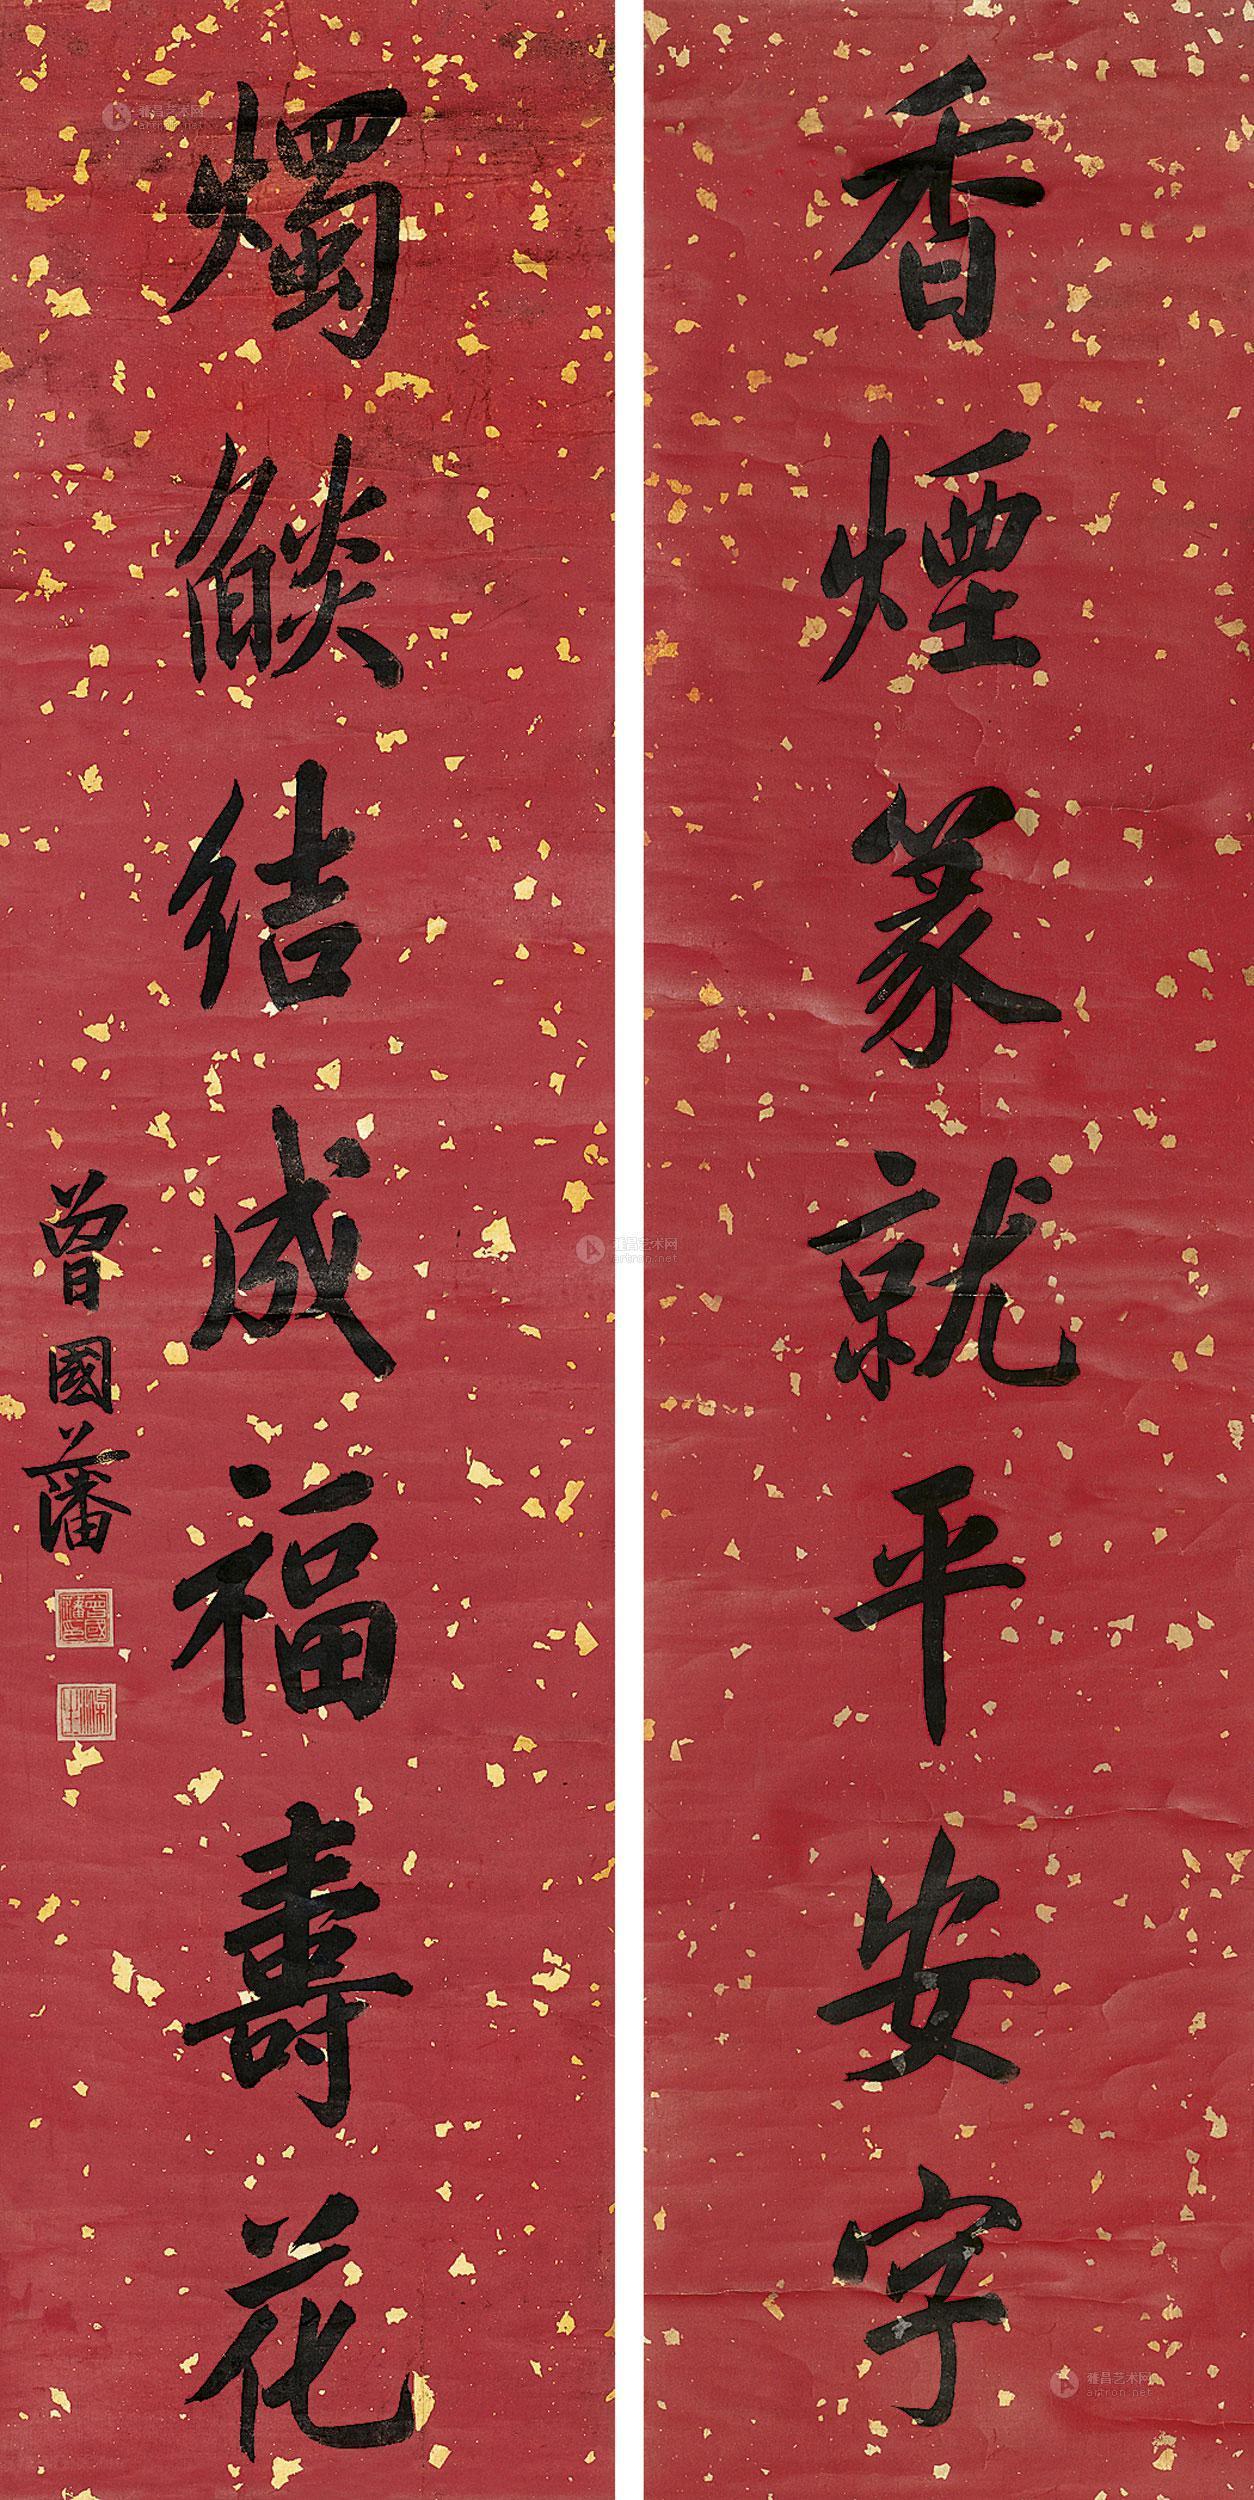 香煙篆就平安字
燭燄結成福壽花
曾國藩
曾國藩印
滌生
雅昌艺术网
artron.net
雅昌艺术网
artron.net
雅昌艺术网
artron.net